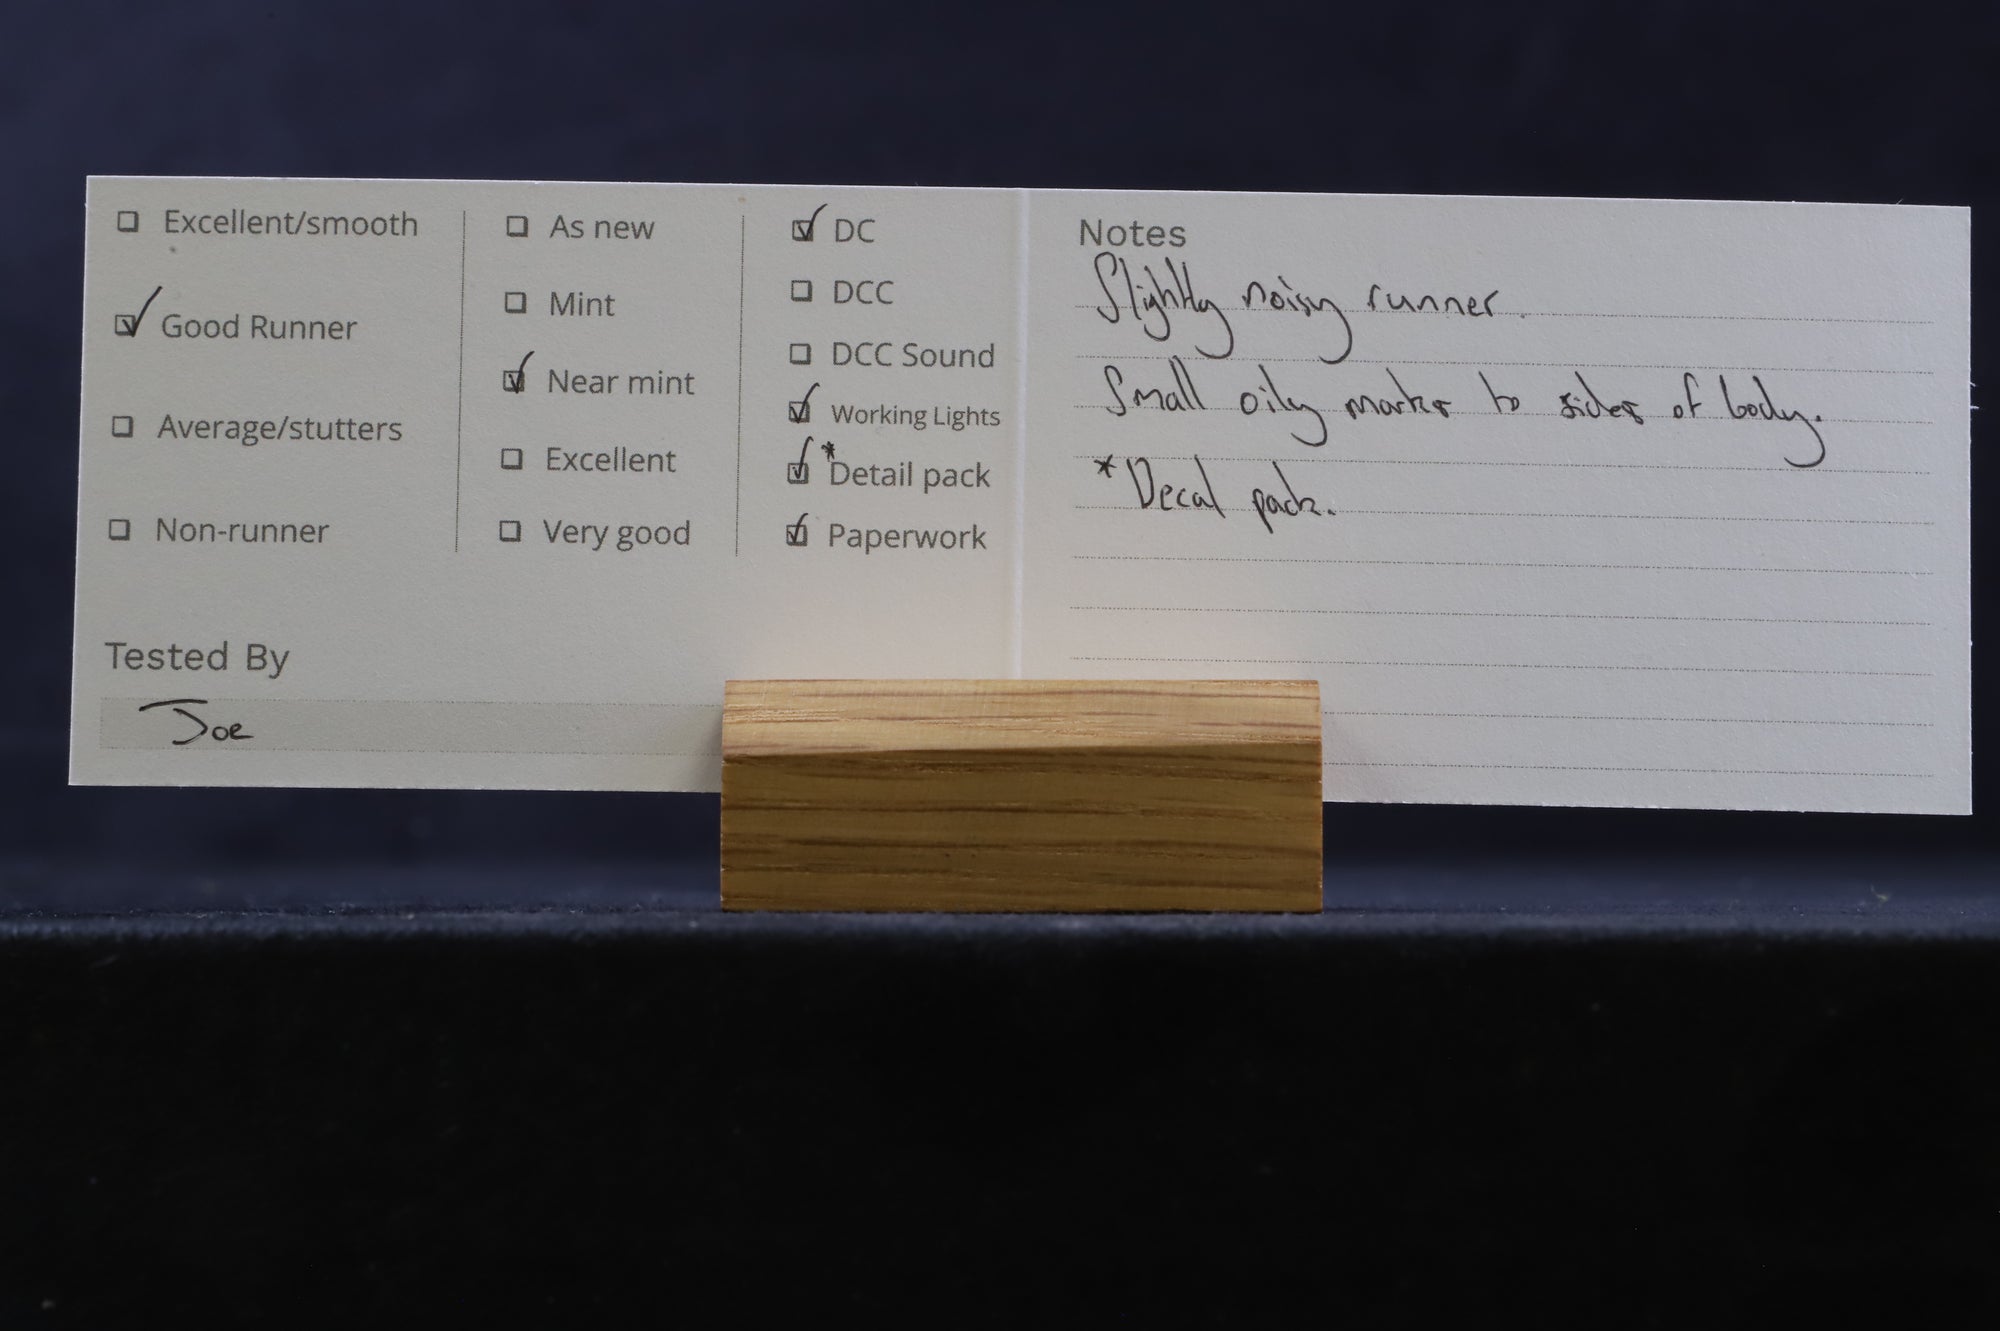 Excellent/smooth
Good Runner
Average/stutters
Non-runner
As new
Mint
Near mint
Excellent
Very good
DC
DCC
DCC Sound
Working Lights
*Detail pack
Paperwork
Tested By
Joe
Notes
Slightly noisy runner.
Small oily marks to sides of body.
*Decal pack.